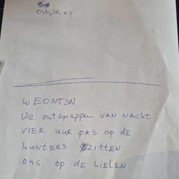 WE ONTSN
WE ontsnappen VAN NACHT
VIER uur pas op de
HUNTERS ZITTEN
ONS op de HIELEN